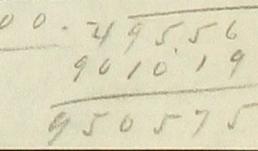 00. 495.56
9010.19
950575